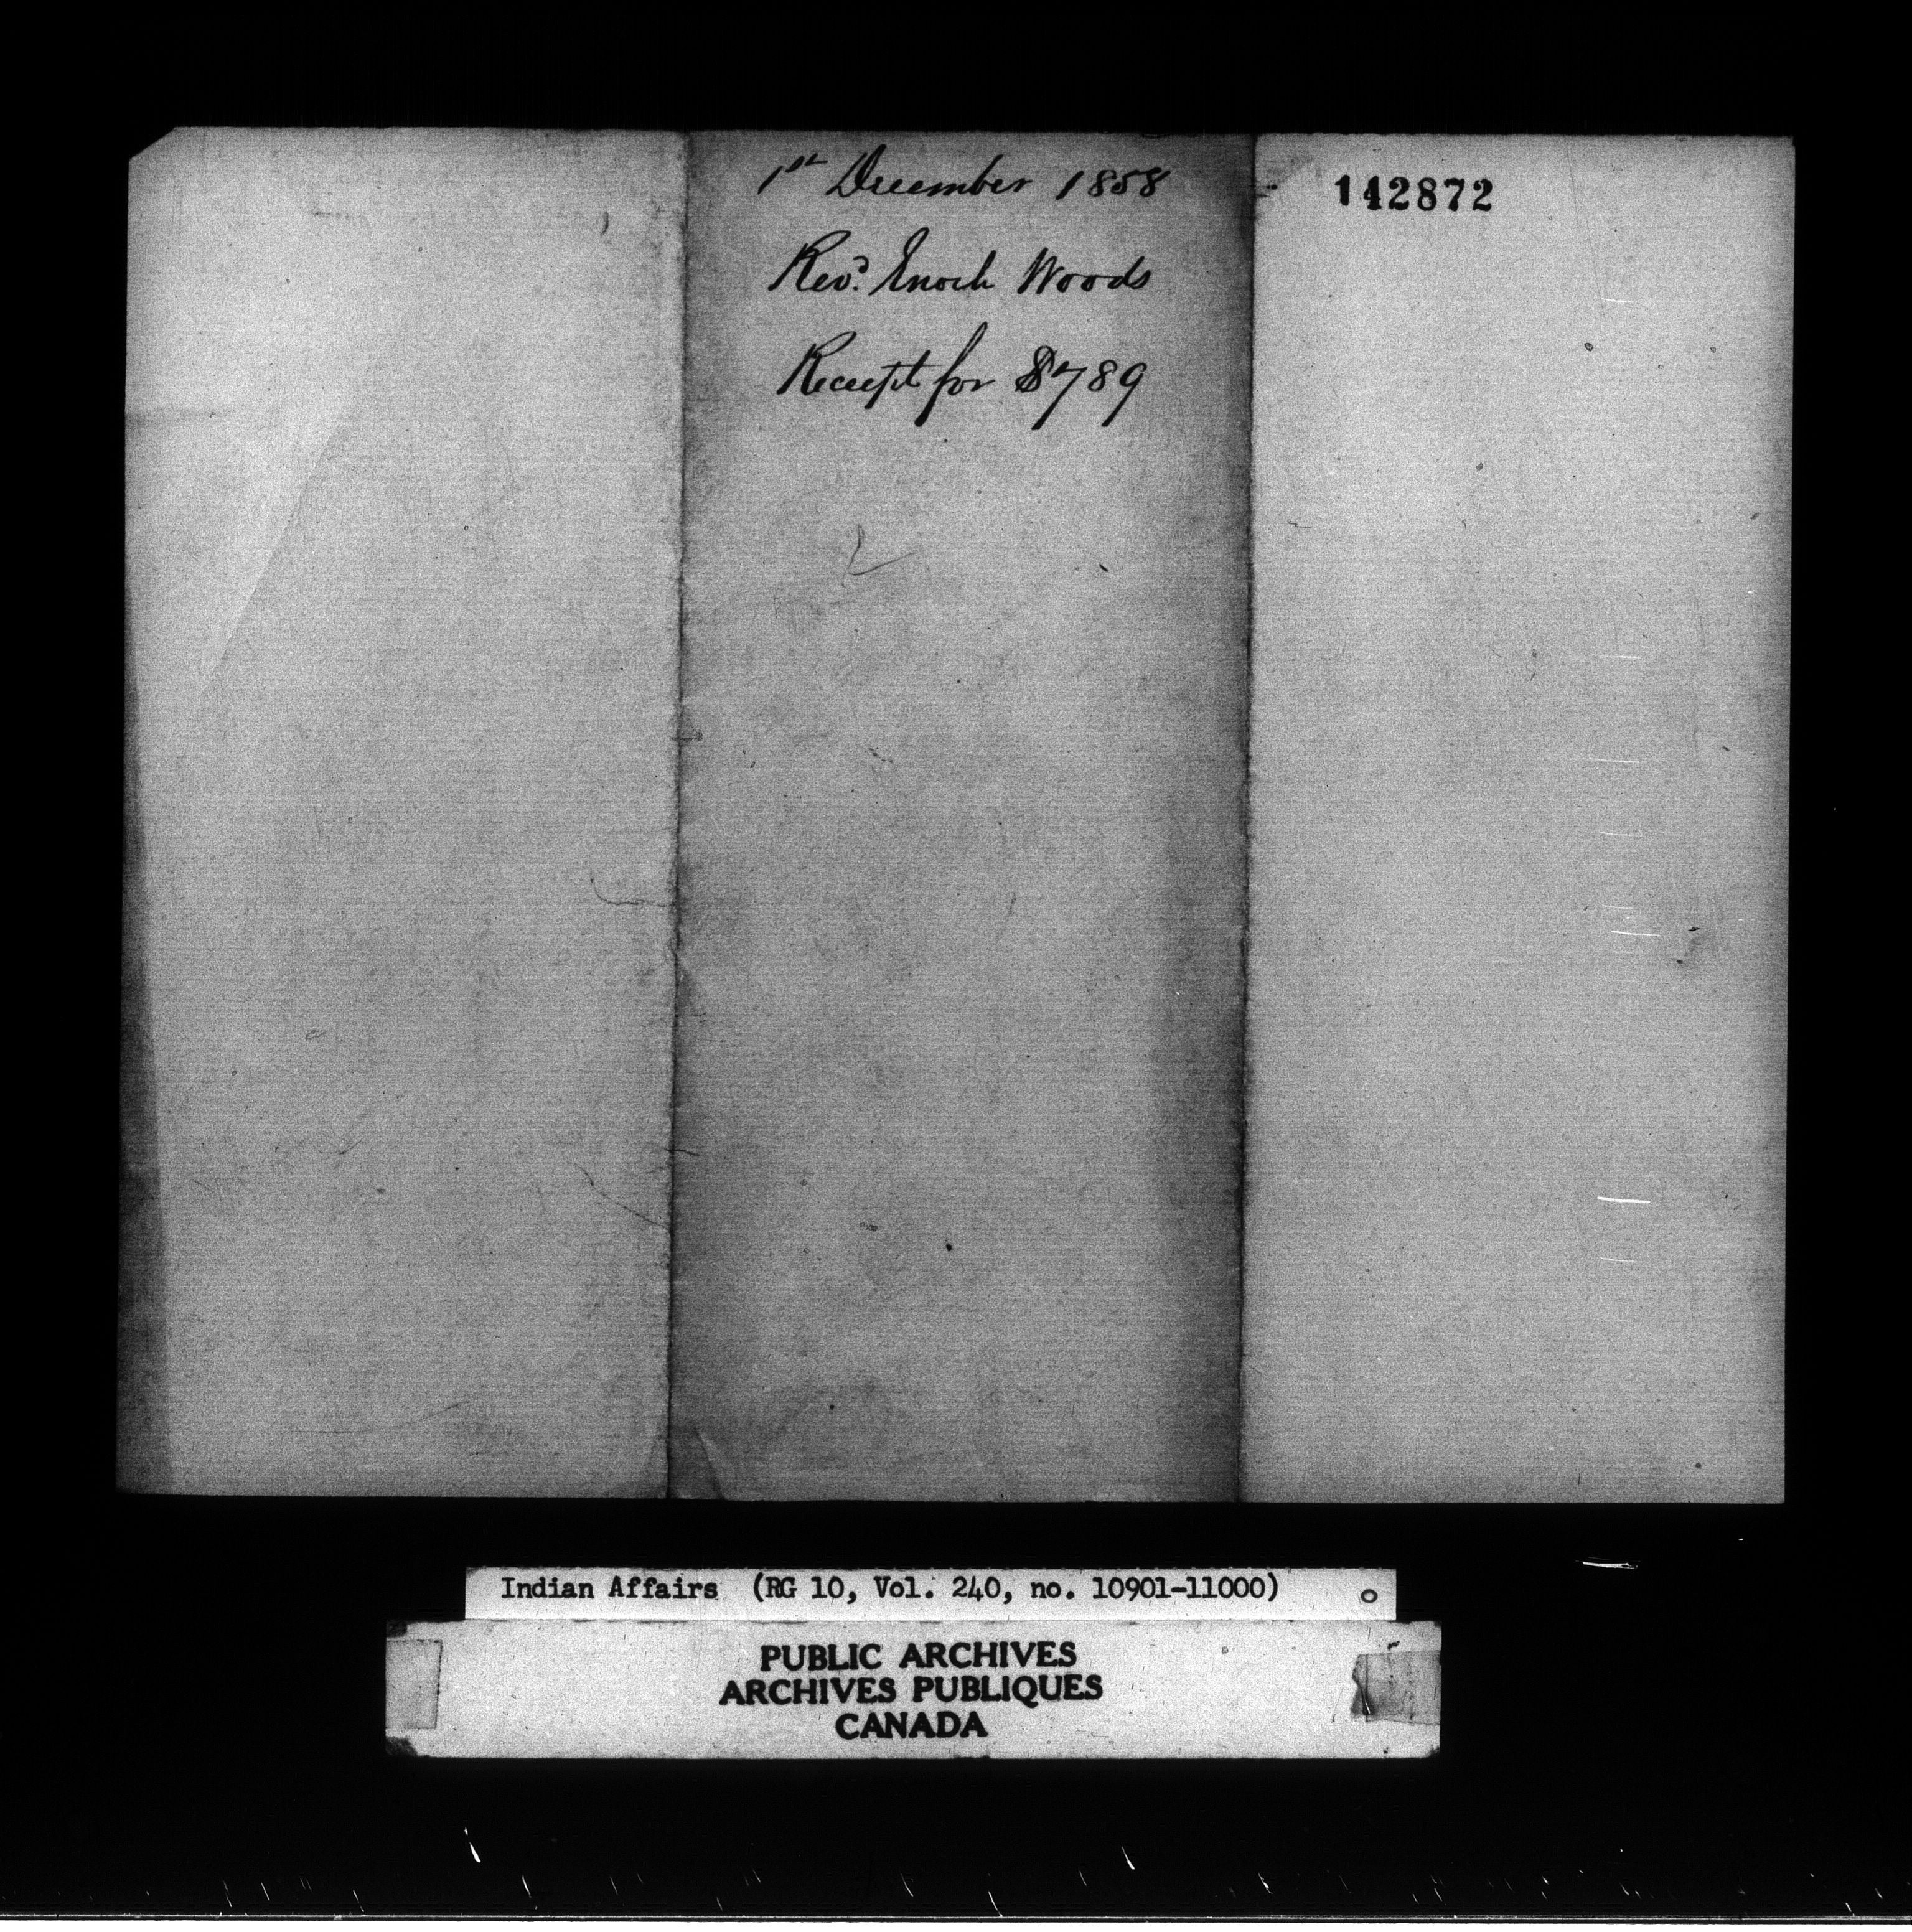 1st December 1858
142872
Revd. Enoch Woods
Receipt for $789
Indian Affairs (RG 10, Vol. 240, no. 10901-11000)
PUBLIC ARCHIVES
ARCHIVES PUBLIQUES
CANADA